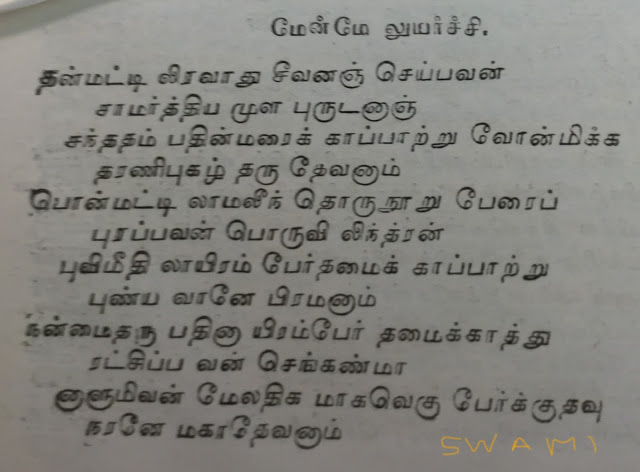 மேன்மே லுயர்ச்சி.
தன்மட்டி லிரவாது சீவனஞ் செய்பவன்
சாமர்த்திய முள புருடனுஞ்
சந்ததம் பதின்மரைக் காப்பாற்று வோன்மிக்க
தரணிபுகழ் தரு தேவனும்
பொன்மட்டி லாமலீந் தொருநூறு பேரைப்
புரப்பவன் பொருவி லிந்த்ரன்
புவிமீதி லாயிரம் பேர்தமைக் காப்பாற்று
புண்ய வானே பிரமனும்
நன்மைதரு பதினா யிரம்பேர் தமைக்காத்து
ரட்சிப்ப வன் செங்கண்மா
லுளுமிவன் மேலதிக மாகவெகு பேர்க்குதவு
நரனே மகாதேவனும்
SWAMI